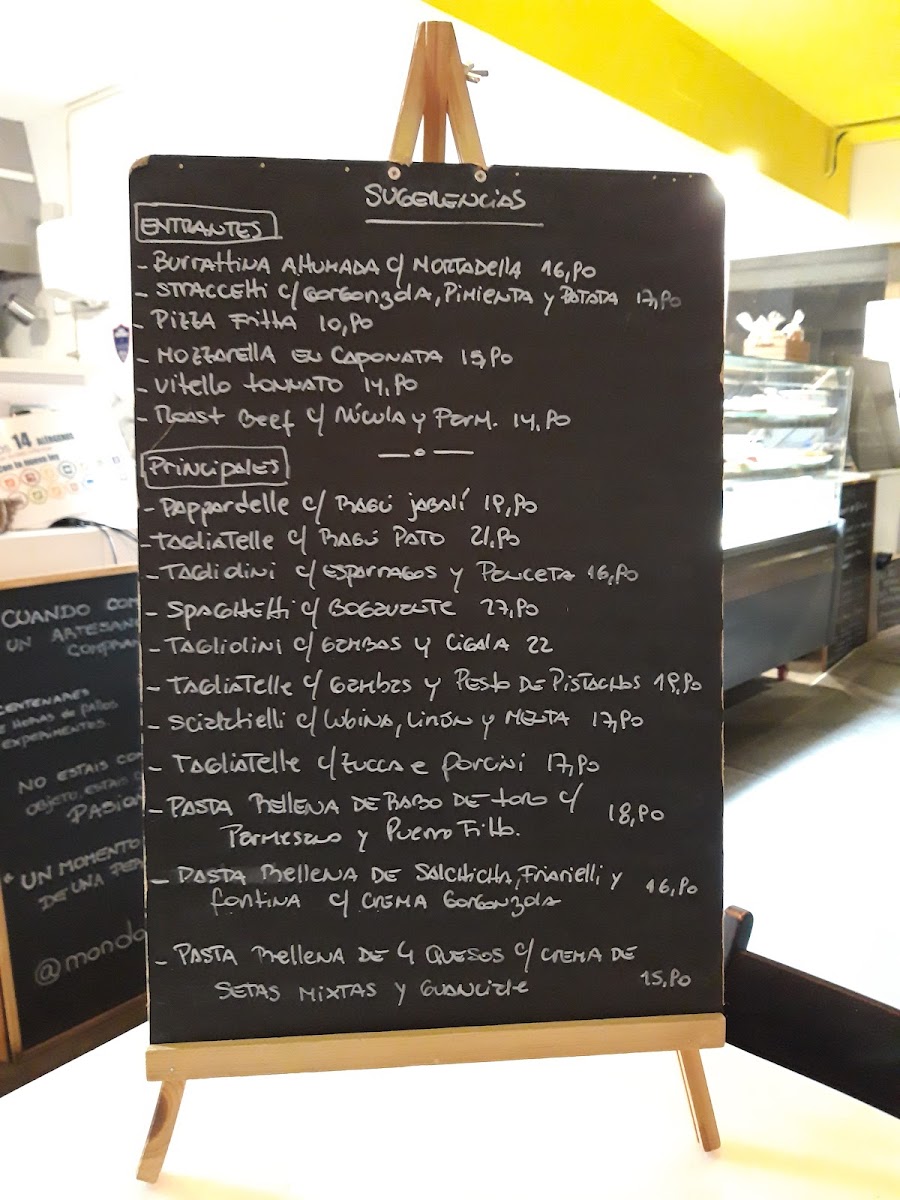 SUGERENCIAS
ENTRANTES
- BURRATTINA AHUMADA C/ MORTADELLA 16,90
- STRACCETTI C/ GORGONZOLA, PIMIENTA Y PATATA 17,90
- PIZZA FRITTA 10,90
- MOZZARELLA EN CAPONATA 15,90
- VITELLO TONNATO 14,90
- ROAST BEEF C/ RÚCULA Y PARM. 14,90
—o—
PRINCIPALES
- PAPPARDELLE C/ RAGÚ JABALÍ 19,90
- TAGLIATELLE C/ RAGÚ PATO 21,90
- TAGLIOLINI C/ ESPARRAGOS Y PANCETA 16,90
- SPAGHETTI C/ BOGAVANTE 27,90
- TAGLIOLINI C/ GAMBAS Y CIGALA 22
- TAGLIATELLE C/ GAMBAS Y PESTO DE PISTACHOS 19,90
- SCIALATIELLI C/ LUBINA, LIMÓN Y MENTA 17,90
- TAGLIATELLE C/ ZUCCA E PORCINI 17,90
- PASTA RELLENA DE RABO DE TORO C/
PARMESANO Y PUERRO FRITTO. 18,90
- PASTA RELLENA DE SALCHICHA, FRIARIELLI Y
FONTINA C/ CREMA GORGONZOLA 16,90
- PASTA RELLENA DE 4 QUESOS C/ CREMA DE
SETAS MIXTAS Y GUANCIALE 15,90
14 ALÉRGENOS
CUANDO COM
UN ARTESAN
COMPRA
CENTENARES
E HORAS DE FALLOS
EXPERIMENTOS
NO ESTAIS CO
OBJETO, ESTAIS
PASION
* UN MOMENTO
DE UNA PER
@mondo